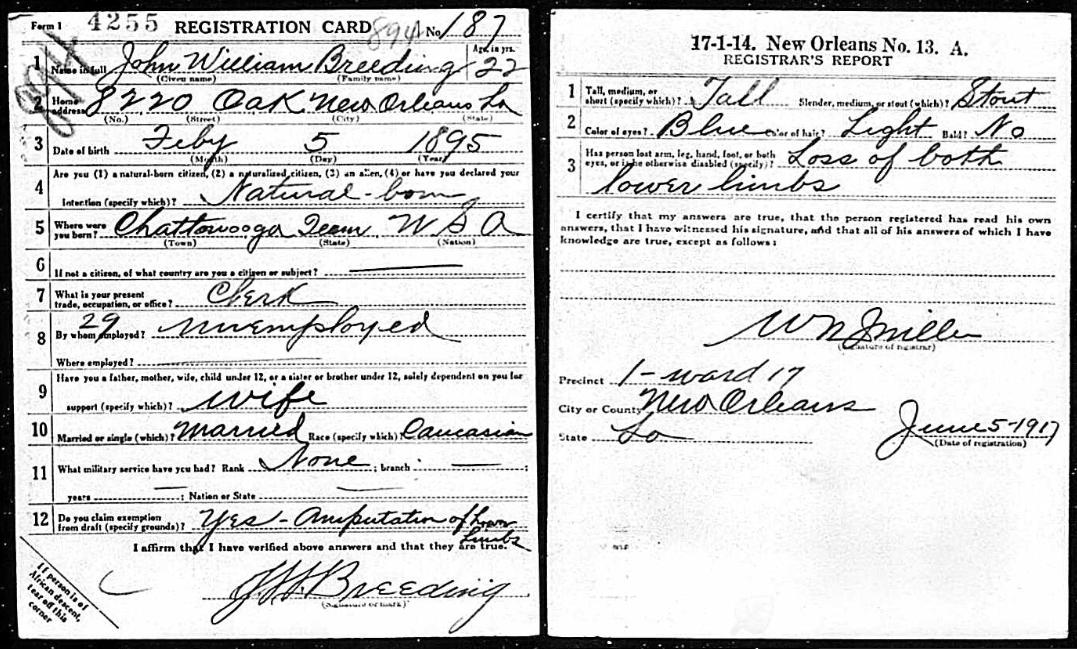 Form 1 4255 REGISTRATION CARD 894 No. 187
1 Name in full John William Breeding Age, in yrs. 22
(Given name) (Family name)
2 Home address 8220 Oak New Orleans La
(No.) (Street) (City) (State)
3 Date of birth Feby 5 1895
(Month) (Day) (Year)
4 Are you (1) a natural-born citizen, (2) a naturalized citizen, (3) an alien, (4) or have you declared your
intention (specify which)? Natural-born
5 Where were you born? Chattowooga Tenn U S A
(Town) (State) (Nation)
6 If not a citizen, of what country are you a citizen or subject?
7 What is your present trade, occupation, or office? Clerk
8 By whom employed? 29 unemployed
Where employed?
9 Have you a father, mother, wife, child under 12, or a sister or brother under 12, solely dependent on you for
support (specify which)? wife
10 Married or single (which)? Married Race (specify which)? Caucasian
11 What military service have you had? Rank None ; branch ;
years ; Nation or State
12 Do you claim exemption from draft (specify grounds)? Yes - Amputation of Lower
Limbs
I affirm that I have verified above answers and that they are true.
J W Breeding
(Signature or mark)
If person is of
African descent,
tear off this
corner
17-1-14. New Orleans No. 13. A.
REGISTRAR'S REPORT
1 Tall, medium, or short (specify which)? Tall Slender, medium, or stout (which)? Stout
2 Color of eyes? Blue Color of hair? Light Bald? No
3 Has person lost arm, leg, hand, foot, or both eyes, or is he otherwise disabled (specify)? Loss of both
lower limbs
I certify that my answers are true, that the person registered has read his own
answers, that I have witnessed his signature, and that all of his answers of which I have
knowledge are true, except as follows:
(Signature of registrar)
Precinct 1-ward 17
City or County New Orleans
State La June 5-1917
(Date of registration)